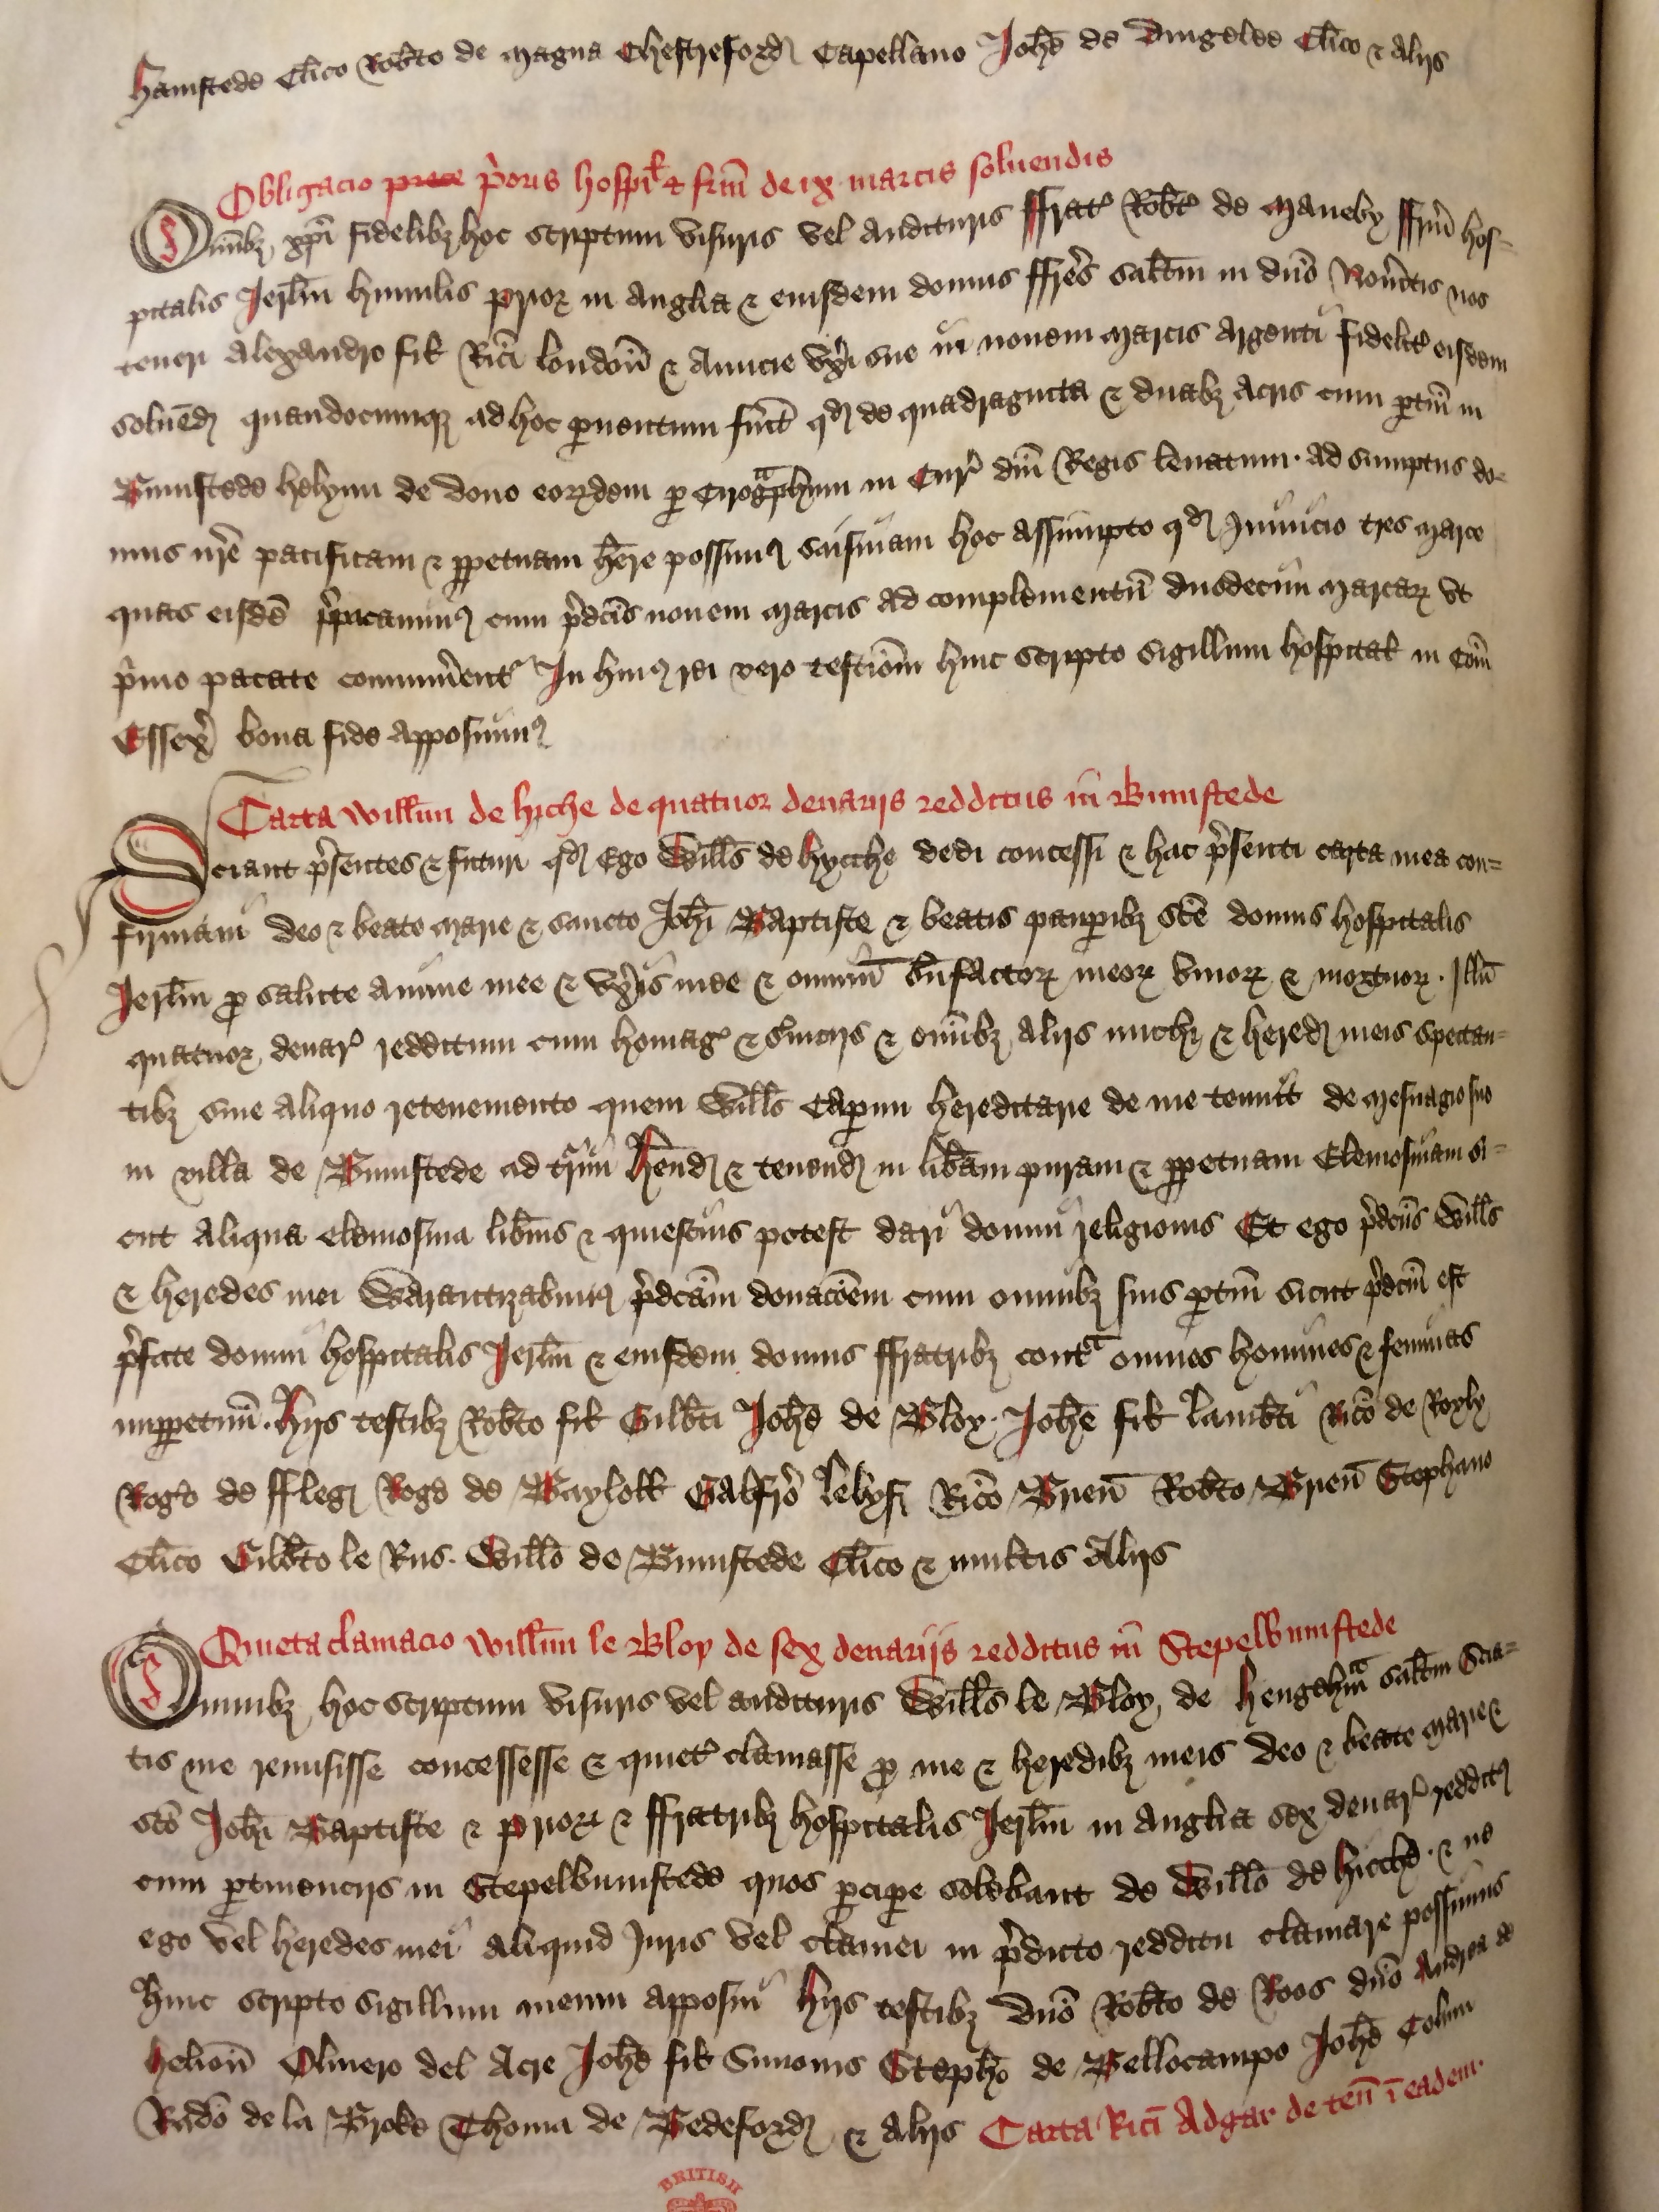 Hamstede Clico Robto de magna Chestreford Capellano Johe de Dingelee Clico & Aliis
Obligacio prece p'oris hospit & frm de ix marcis soluendis
Omibz xpi fidelibz hoc scriptum visuris vel audituris ffrat' Robt' de Maneby ffrm hos=
pitalis Jerlm humilis prior in Anglia & eiusdem domus ffres saltm in dno Nou'itis nos
teneri Alexandro fil Rici london & Amicie vx'i sue in nouem marcis Argenti fidelit' eisdem
soluend quandocumqz ad hoc peruentum fu'it qd de quadraginta & duabz Acris cum ptin in
Bumstede helyun de dono eorzdem p Cirographum in Cur' dni Regis leuatum. Ad sumptus do=
mus nre pacificam & ppetuam here possim9 saisinam hoc Assumpto qd Inuicio tres marce
quas eisde p'pacauim9 cum p'dcis nouem marcis Ad complementu duodecim marcarz vt
p'mo pacate connum'ent' In hui9 rei vero testiom huic scripto sigillum hospital in Com
Essex' bona fide Apposuim9
Carta Willmi de hiche de quatuor denariis redditus in Bumstede
Sciant p'sentes & futuri qd Ego Wills de hycche dedi concessi & hac p'senti carta mea con=
firmaui deo & beate marie & sancto Johi Baptiste & beatis paupibz ste domus hospitalis
Jerlm p salute Anime mee & vx'is mee & omium bn'factorz meorz viuorz & mortuorz. Illu
quatuor denar' redditum cum homag' & s'uiciis & omibz Aliis michi & hered meis spectan=
tibz sine Aliquo retenemento quem Wills Capun hereditarie de me tenuit de mesuagio suo
in villa de Bumstede Ad t'rim hend & tenend in libam puram & ppetuam Elemosinam si=
cut Aliqua elemosina libius & quiescius potest dari domui religionis Et ego p'dcus Wills
& heredes mei Warantizabim9 p'dcam donacoem cum omnibz suis ptin sicut p'dcm est
p'fate domui hospitalis Jerlm & eiusdem domus ffratribz contra omnes homines & feminas
imppetuu. Hiis testibz Robto fil Gilbti Johe de Bloy. Johe fil lambti Rico de Roxly
Rogo de ffleg Rogo de Bayloll Galfro lebysi Rico Bren Robto Bren Stephano
Clico Gilbto le Rus. Willo de Bumstede Clico & multis Aliis
Quieta clamacio Willmi le Bloy de sex denariis redditus in Stepelbumstede
Omnibz hoc scriptum visuris vel audituris Wills le Bloy de Hengehma saltm Scia=
tis me remisisse concessesse & quiet' clamasse p me & heredibz meis deo & beate marie &
sto Johi Baptiste & priori & ffratribz hospitalis Jerlm in Anglia sex denar' reddit9
cum ptinenciis in Stepelbumstede quos pcipe solebant de Willo de hicche. & ne
ego vel heredes mei Aliquid Juris vel clamei in p'dicto redditu clamare possimus
Huic scripto sigillum meum apposui Hiis testibz dno Robto de Roos dno Andrea de
helion Oliuero del Acre Johe fil Simonis Stepho de Bellocampo Johe Colum
Rado de la Broke Thoma de Bedeford & Aliis Carta Rici Adgar de ten i eadem.
BRITISH